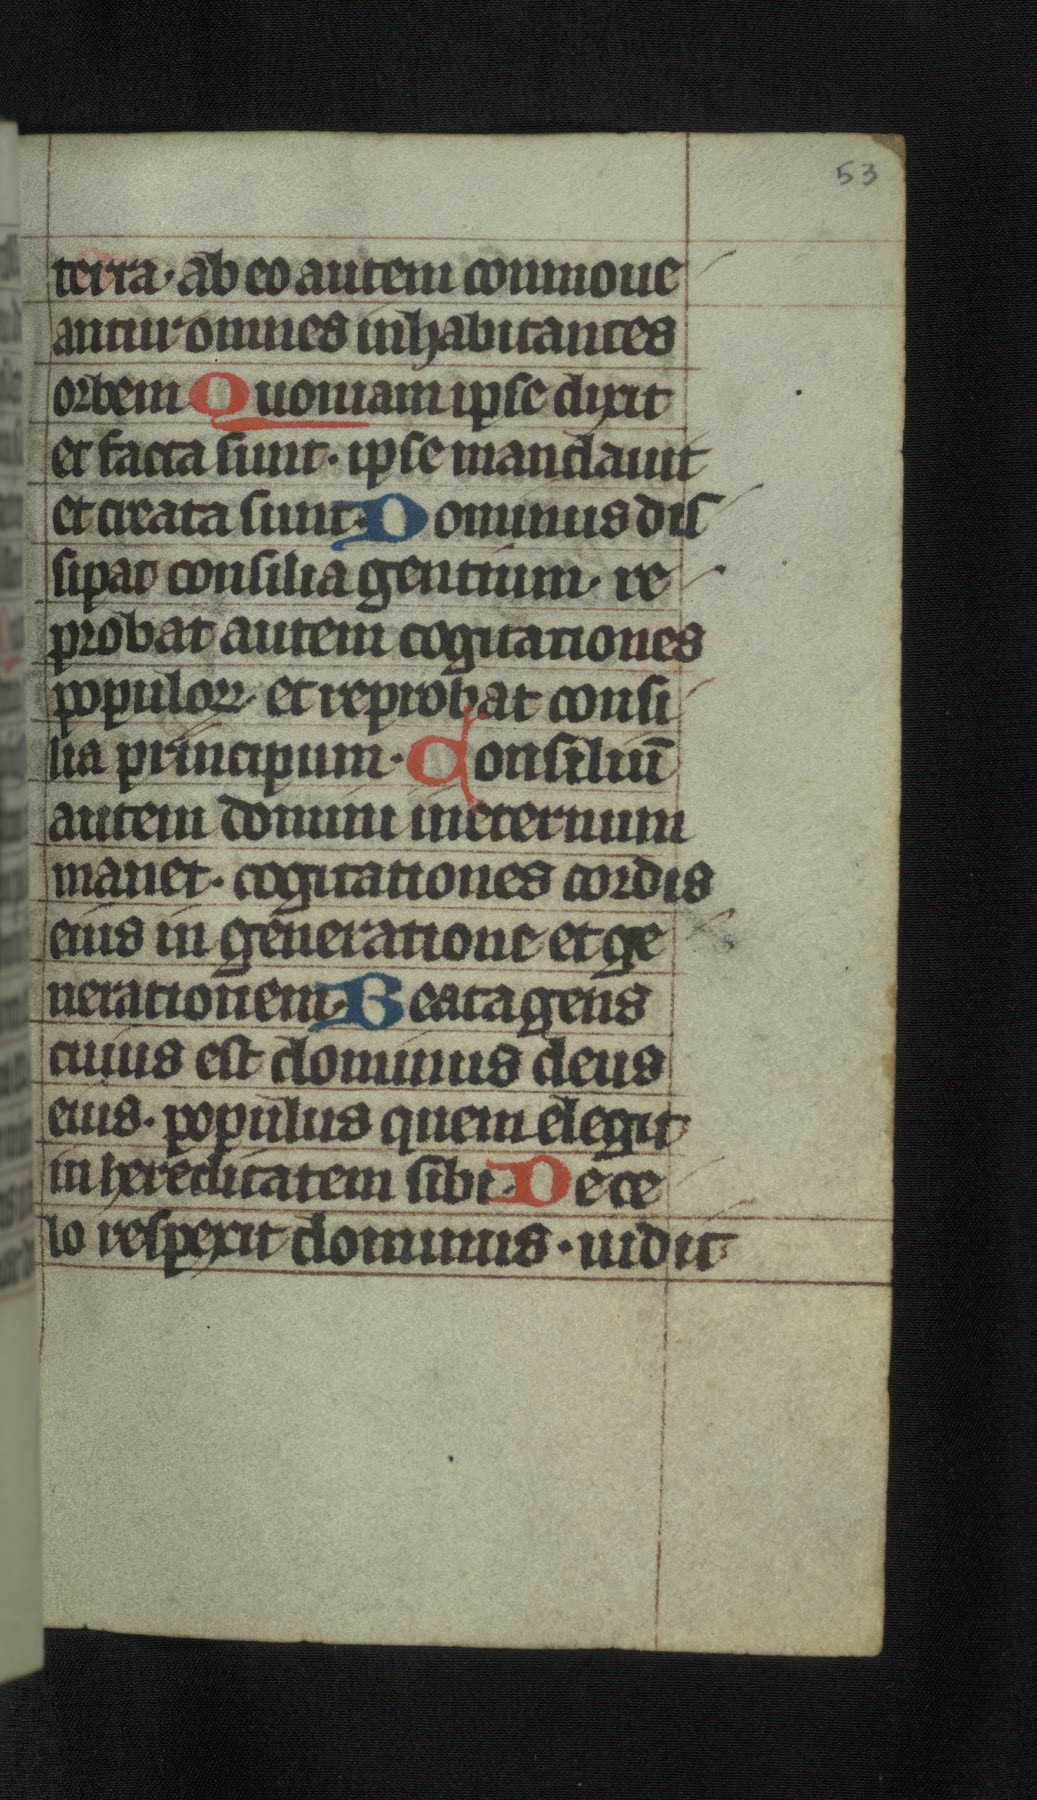 53
terra · ab eo autem conmoue
antur omnes inhabitantes
orbem Quoniam ipse dixit
et facta sunt · ipse mandauit
et creata sunt · Dominus dis
sipat consilia gentium · re
probat autem cogitationes
populoꝝ · et reprobat consi
lia principum · Consiliū
autem domini ineternum
manet · cogitationes cordis
eius in generatione et ge
nerationem · Beata gens
cuius est dominus deus
eius · populus quem elegit
in hereditatem sibi · De ce
lo respexit dominus · uidit